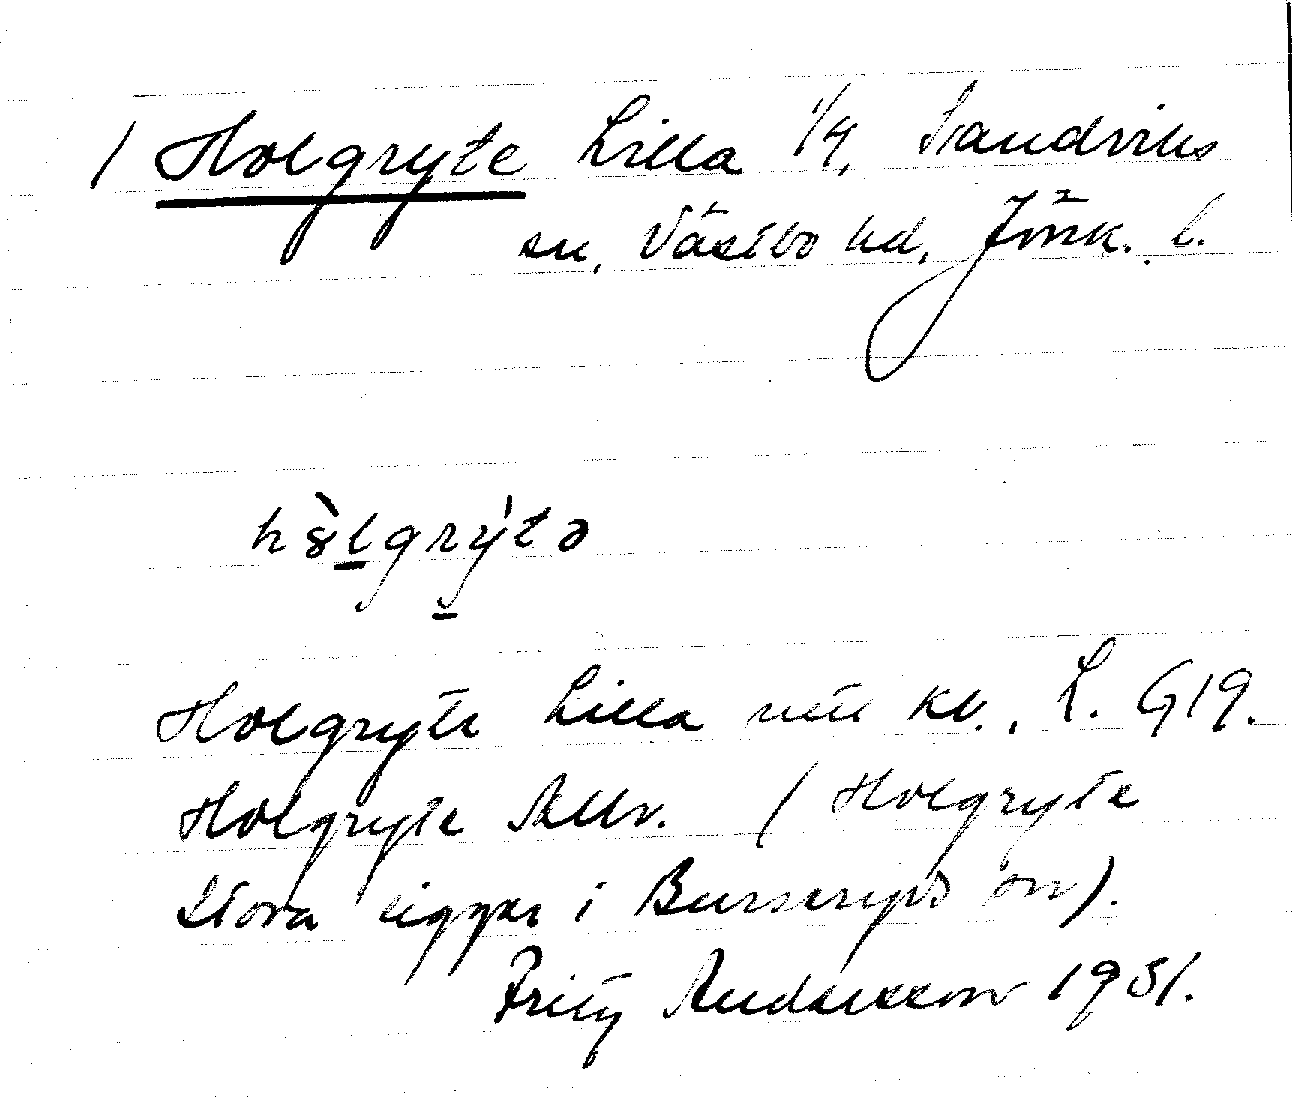 / Holgryte Lilla 1/4, Sandviks
sn, Västbo hd, Jönk. l.
hȣ̀lgrýtə
Holgryte Lilla till kb., L. G19.
Holgryte Allv. (Holgryte
Stora ligger i Burseryds sn).
Fritz Andersson 1931.